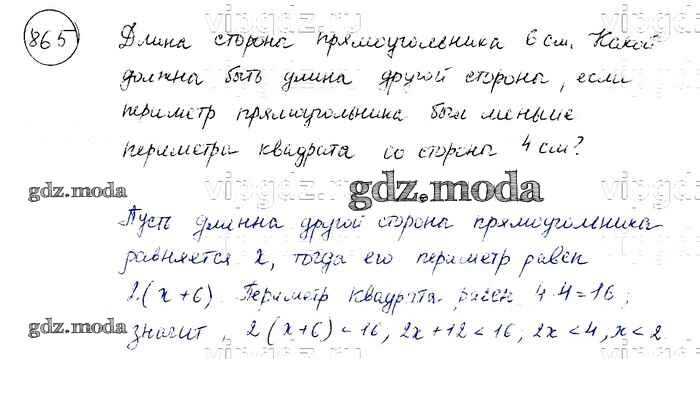 865 Длина стороны прямоугольника 6 см. Какой
должна быть длина другой стороны, если
периметр прямоугольника был меньше
периметра квадрата со стороны 4 см?
gdz.moda
gdz.moda
Пусть длинна другой сторона прямоугольника
равняется x, тогда его периметр равен
2·(x+6). Периметр квадрата равен 4·4=16;
gdz.moda
значит, 2(x+6)<16, 2x+12<16; 2x<4, x<2